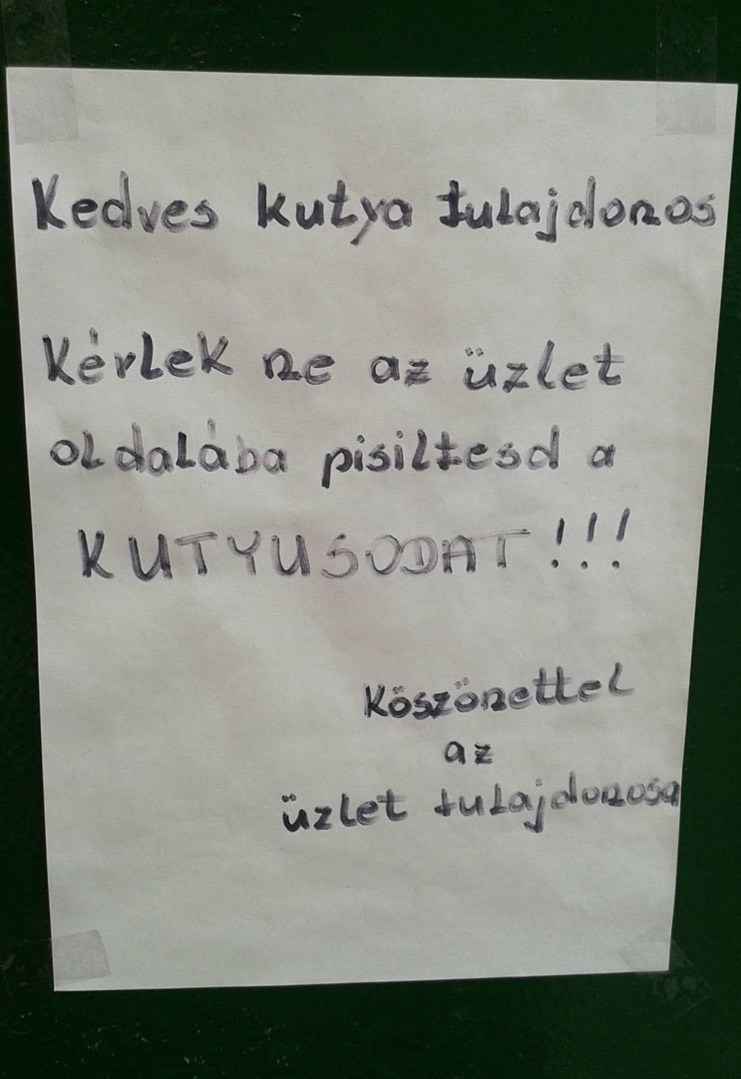 Kedves kutya tulajdonos
Kérlek ne az üzlet
oldalába pisiltesd a
KUTYUSODAT!!!
Köszönettel
az
üzlet tulajdonosa